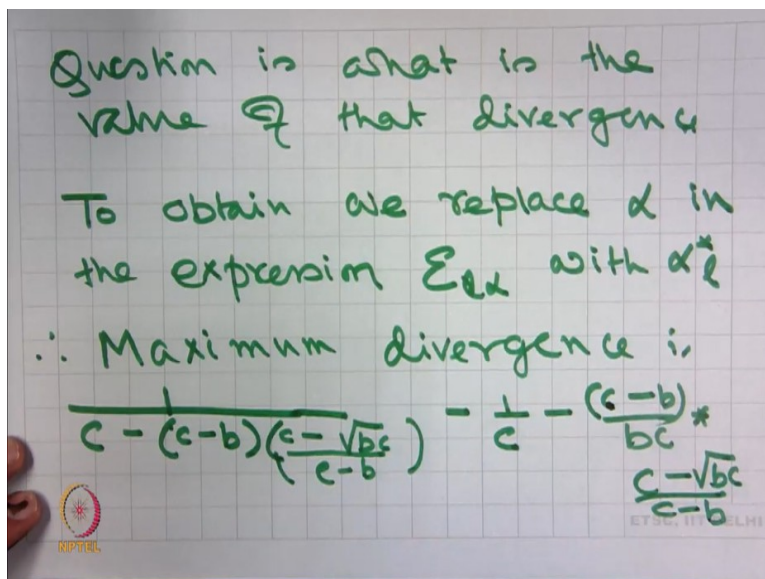 Question is what is the
value of that divergence
To obtain we replace α in
the expression Ɛ_{lα} with α*_l
∴ Maximum divergence is
1/(c - (c-b)((c-√bc)/(c-b))) - 1/c - (c-b)/bc *
(c-√bc)/(c-b)
ETSC, IIT DELHI
NPTEL